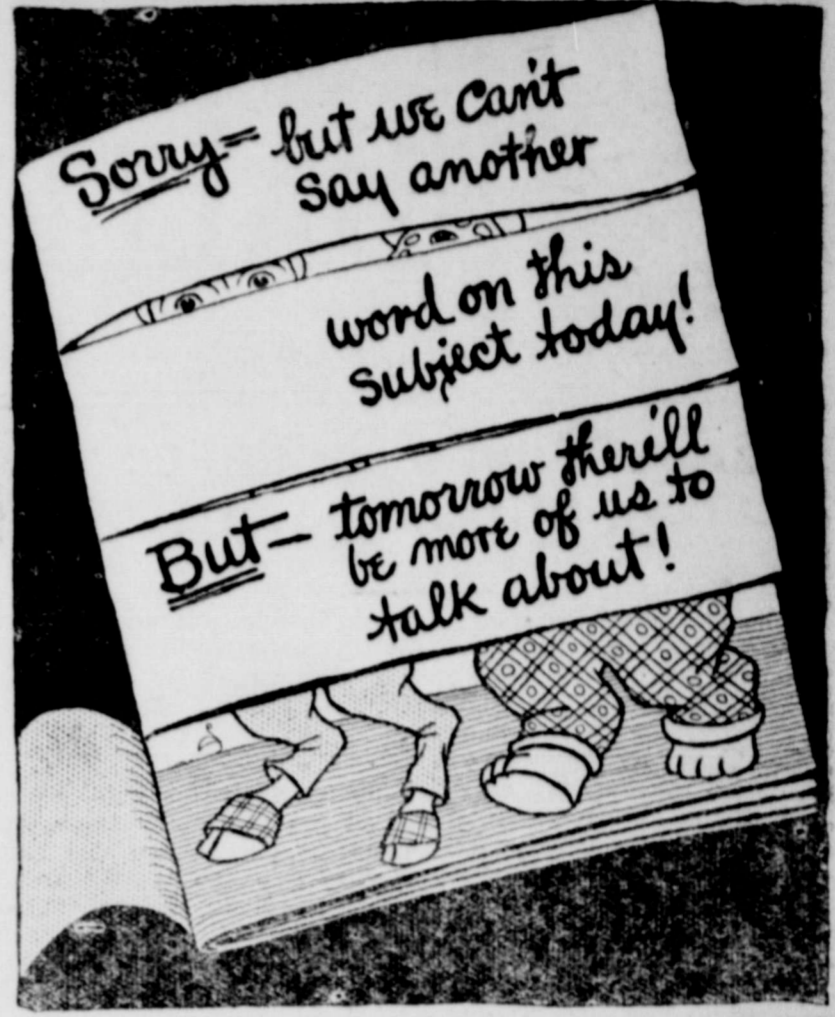 Sorry= but we can't
say another
word on this
subject today!
But— tomorrow there'll
be more of us to
talk about!